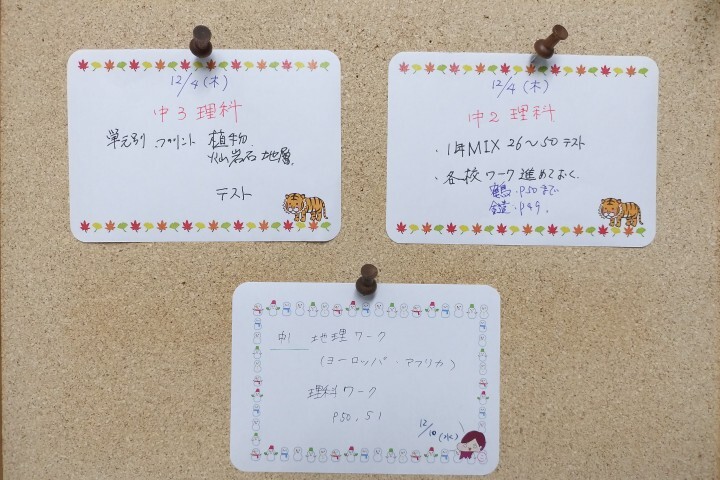 12/4(木)
中3理科
単元別 プリント 植物
火山岩石地層。
テスト
12/4(木)
中2理科
・1年MIX 26～50テスト
・各校ワーク進めておく。
鶴・P50まで
・P49。
中1 地理ワーク
(ヨーロッパ・アフリカ)
理科ワーク
P50,51
12/10(水)